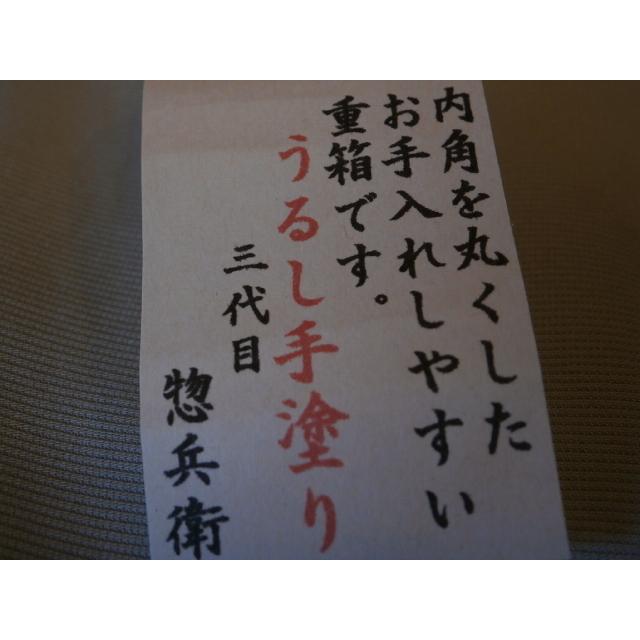 内角を丸くした
お手入れしやすい
重箱です。
うるし手塗り
三代目
惣兵衛